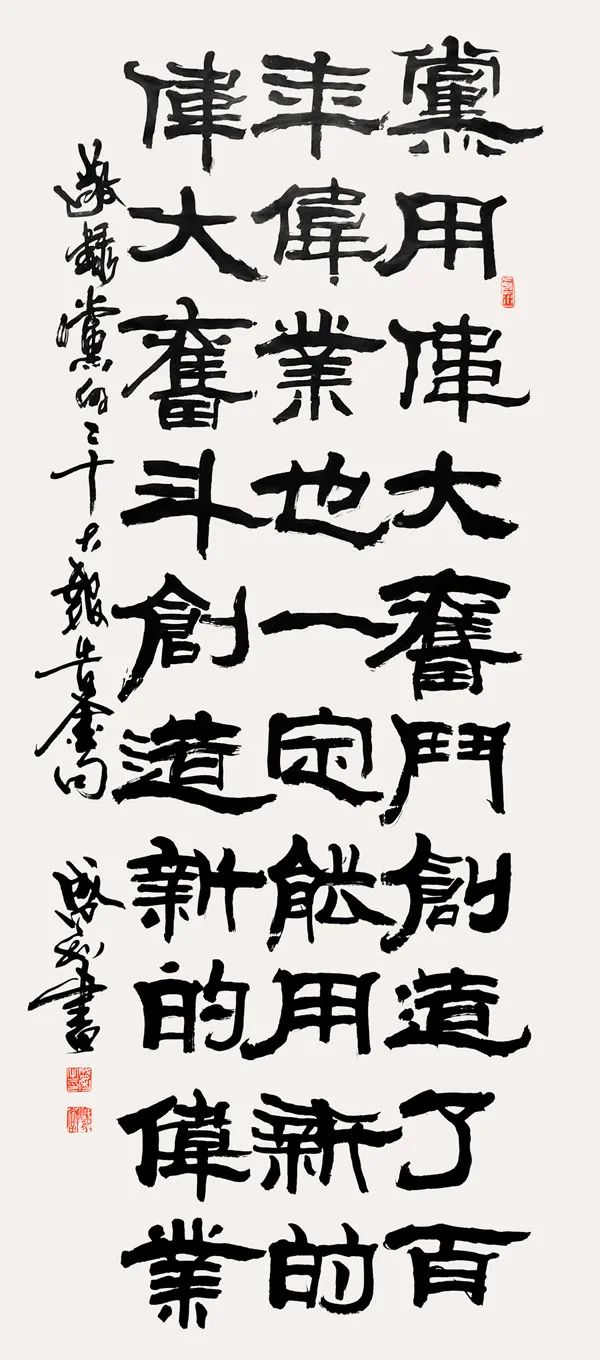 黨用偉大奮鬥創造了百
年偉業也一定能用新的
偉大奮斗創造新的偉業
敬錄黨的二十大報告金句
書